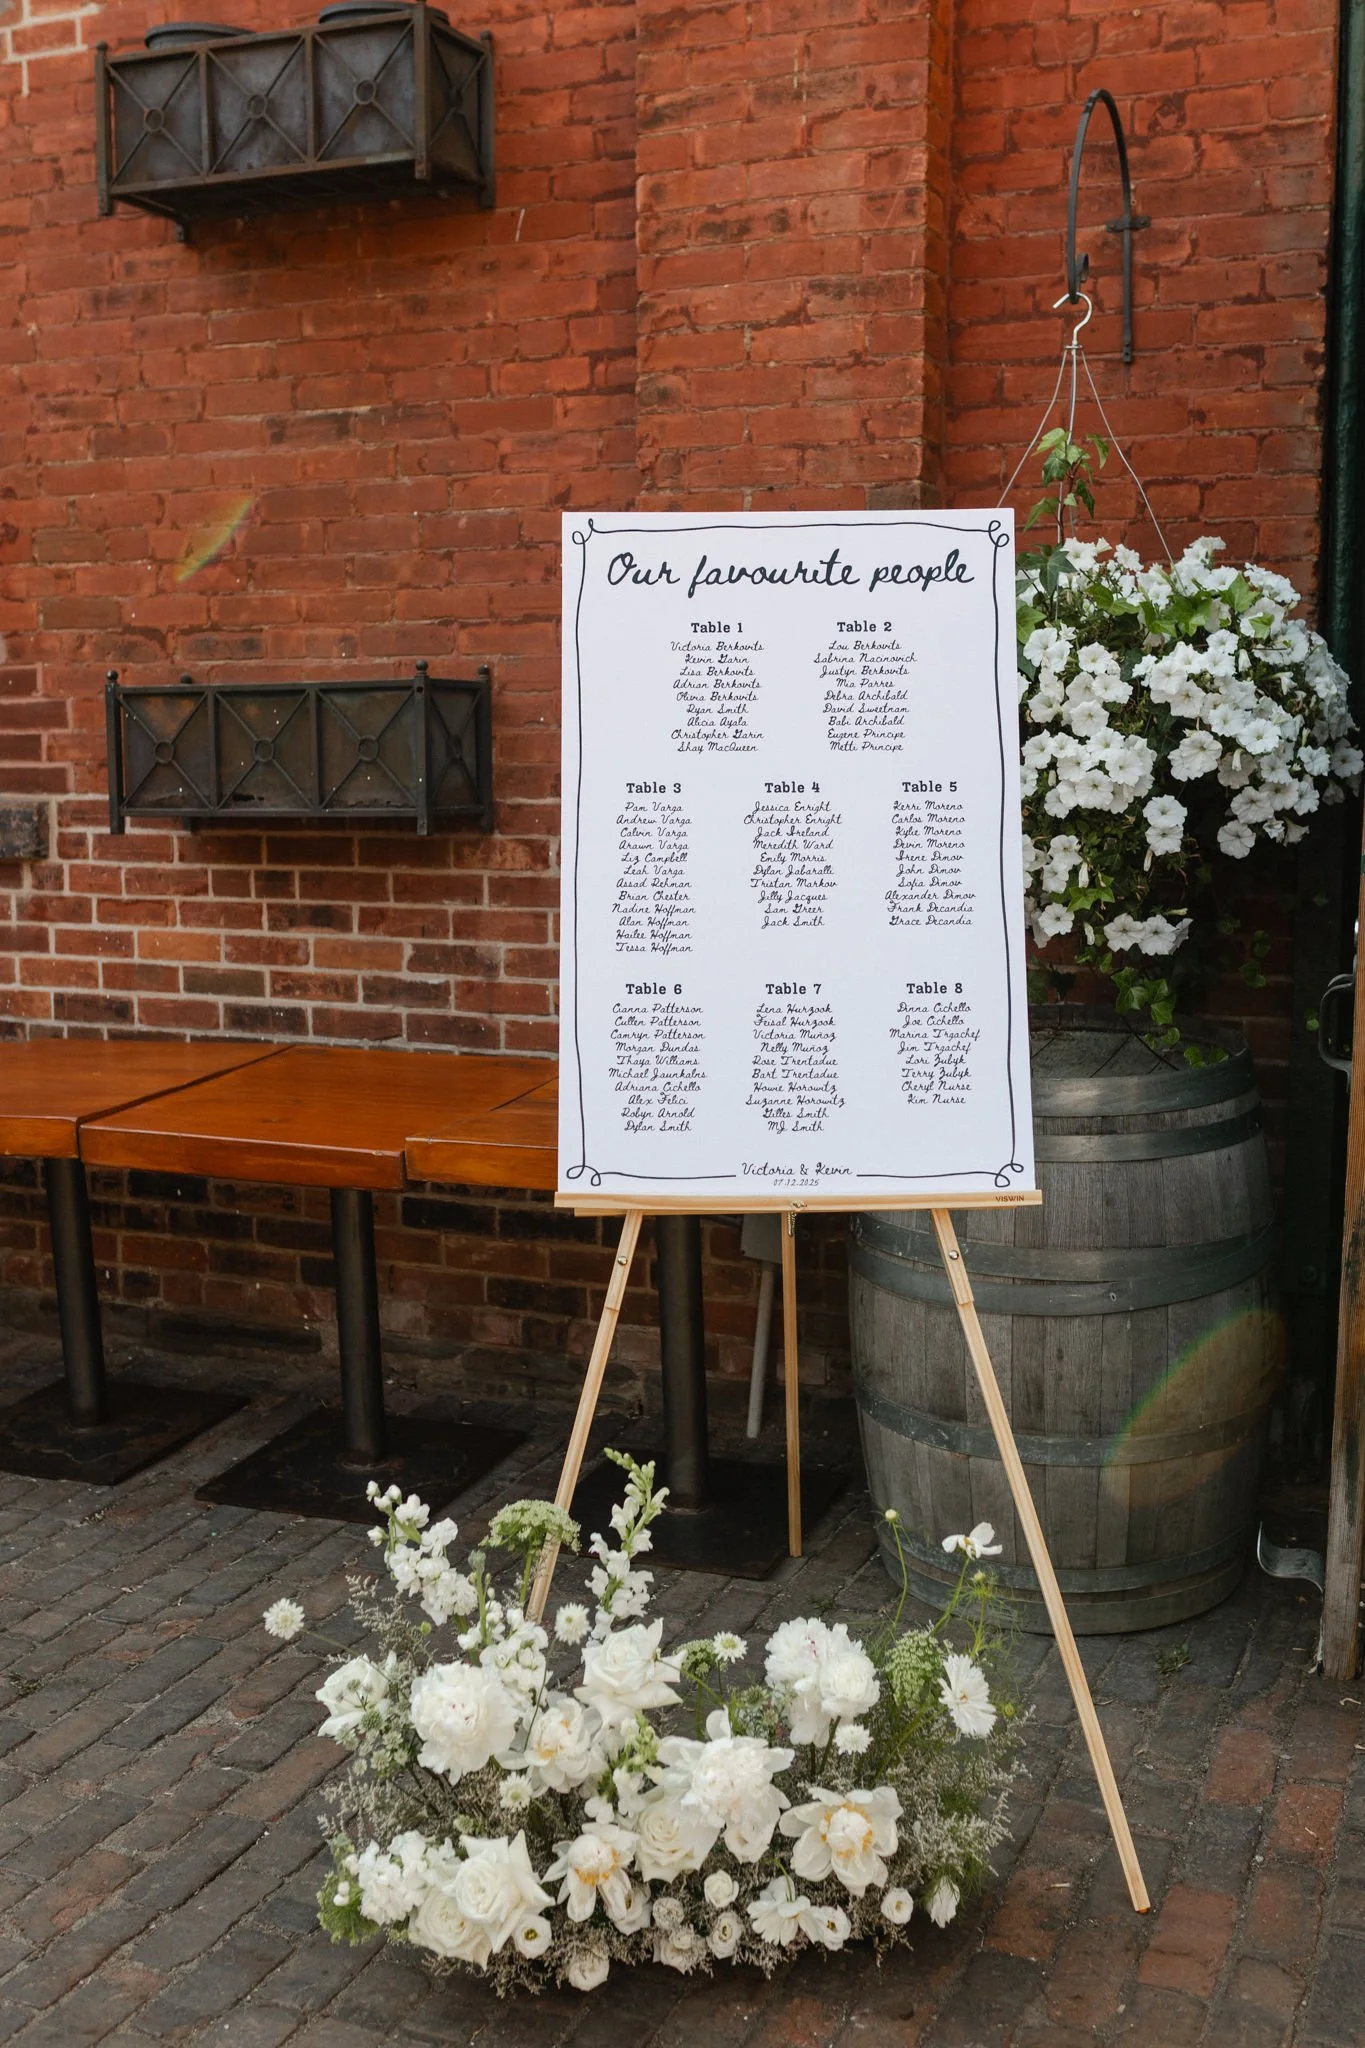 Our favourite people
Table 1
Victoria Berkovits
Kevin Garin
Lisa Berkovits
Adrian Berkovits
Olivia Berkovits
Ryan Smith
Alicia Ayala
Christopher Garin
Shay MacQueen
Table 2
Lou Berkovits
Sabrina Nacinovich
Justyn Berkovits
Mia Parres
Debra Archibald
David Sweetnam
Babi Archibald
Eugene Principe
Metti Principe
Table 3
Pam Varga
Andrew Varga
Calvin Varga
Arawn Varga
Liz Campbell
Leah Varga
Assad Rehman
Brian Chester
Nadine Hoffman
Alan Hoffman
Hailee Hoffman
Tessa Hoffman
Table 4
Jessica Enright
Christopher Enright
Jack Ireland
Meredith Ward
Emily Morris
Dylan Jabaralli
Tristan Markov
Jilly Jacques
Sam Greer
Jack Smith
Table 5
Kerri Moreno
Carlos Moreno
Kylie Moreno
Devin Moreno
Irene Dimov
John Dimov
Sofia Dimov
Alexander Dimov
Frank Decandia
Grace Decandia
Table 6
Cianna Patterson
Cullen Patterson
Camryn Patterson
Morgan Dundas
Thaya Williams
Michael Jaunkalns
Adriana Cichello
Alex Felici
Robyn Arnold
Dylan Smith
Table 7
Lena Hurzook
Feisal Hurzook
Victoria Muñoz
Nelly Muñoz
Rose Trentadue
Bart Trentadue
Howie Horowitz
Suzanne Horowitz
Gilles Smith
MJ Smith
Table 8
Dinna Cichello
Joe Cichello
Marina Trgachef
Jim Trgachef
Lori Zubyk
Terry Zubyk
Cheryl Nurse
Kim Nurse
Victoria & Kevin
07.12.2025
VISWIN